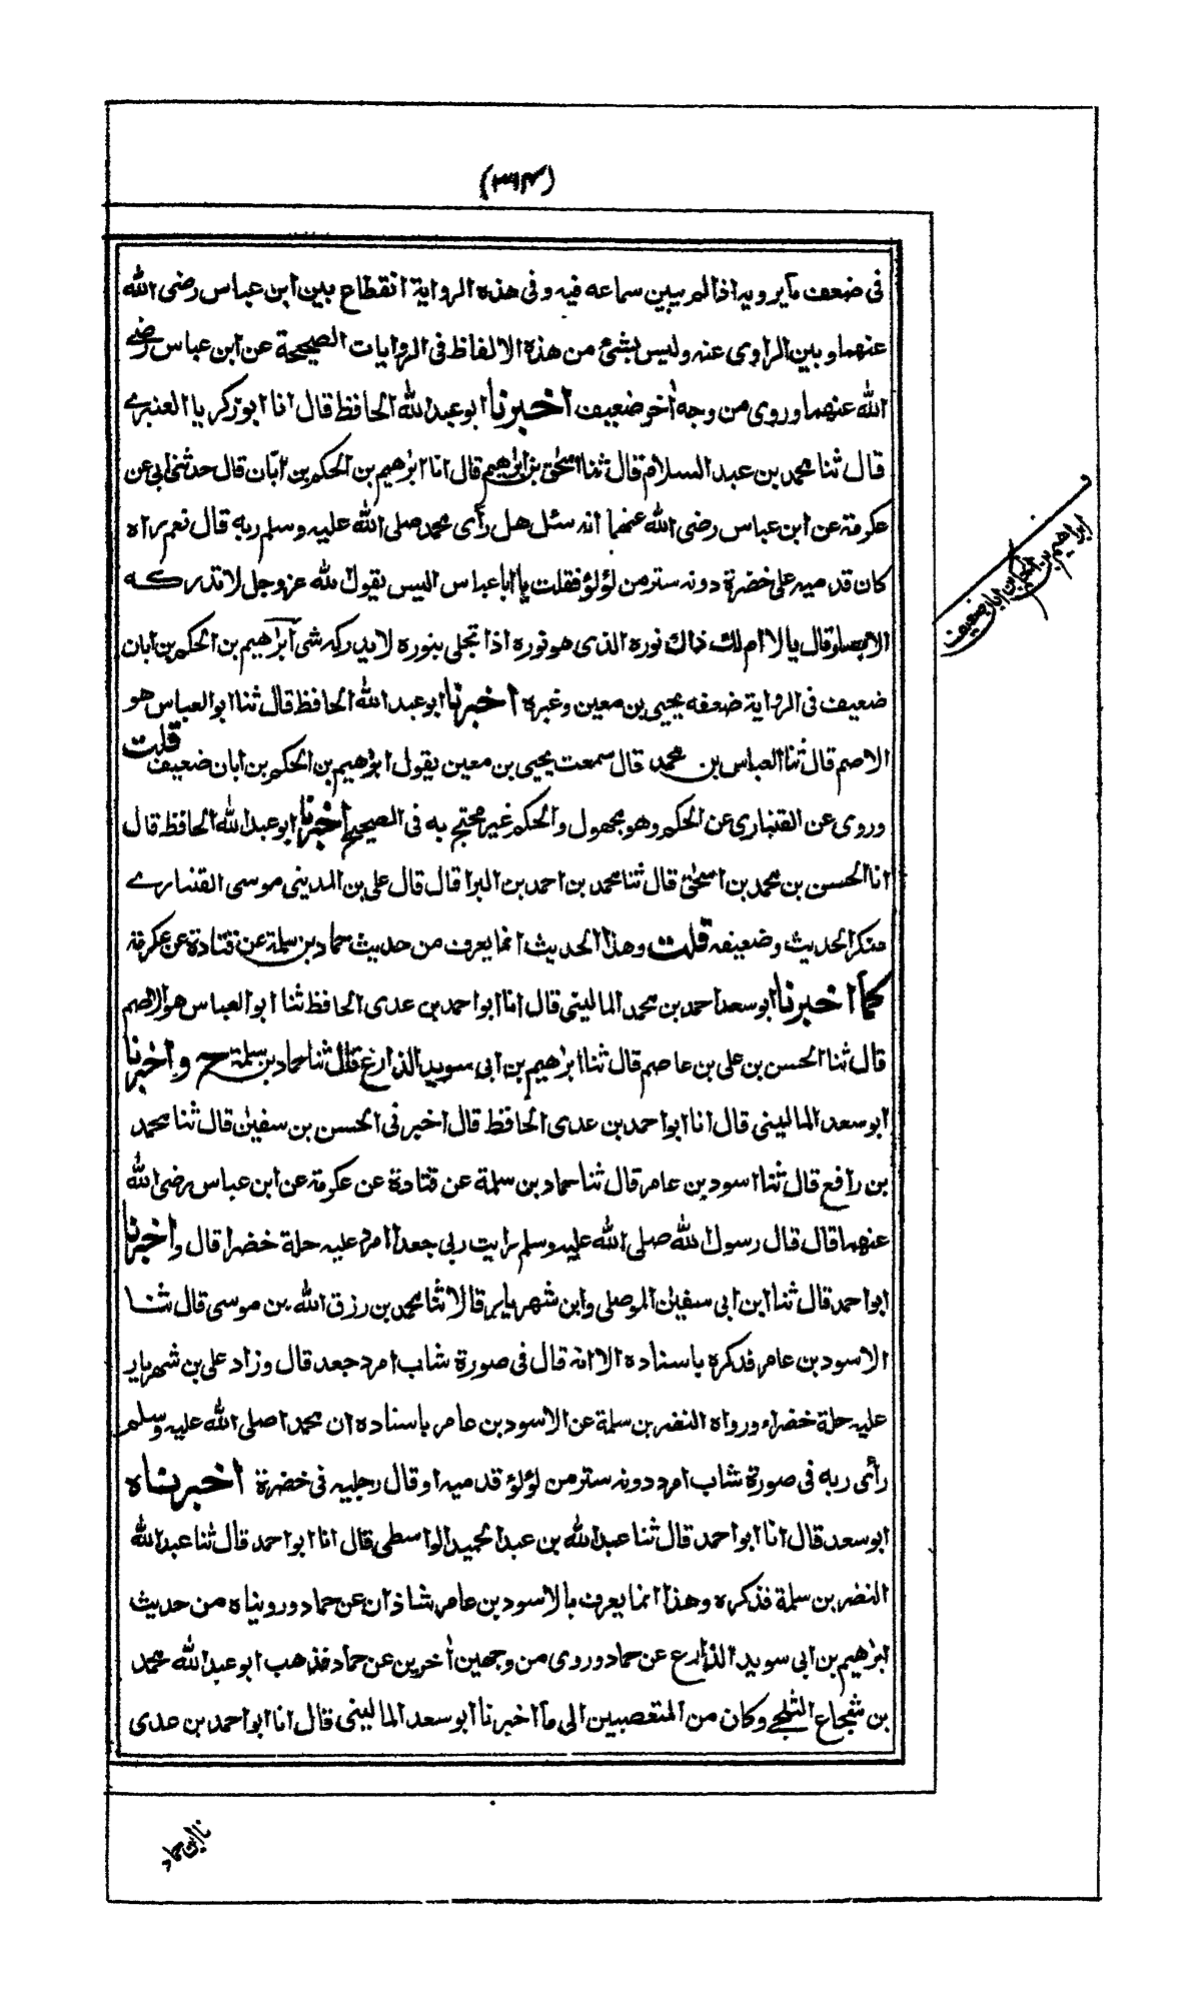 (۳۱۴)
فى ضعف ما يرويه اذا لم يبين سماعه فيه وفى هذه الرواية انقطاع بين ابن عباس رضى الله
عنهما وبين الراوى عنه وليس بشئ من هذه الالفاظ فى الروايات الصحيحة عن ابن عباس رضى
الله عنهما وروى من وجه اٰخر ضعيف اخبرنا ابو عبد الله الحافظ قال انا ابو زكريا العنبرے
قال ثنا محمد بن عبد السلام قال ثنا اسحٰق بن ابرٰهيم قال انا ابرٰهيم بن الحكم بن ابان قال حدثنى ابى عن
عكرمة عن ابن عباس رضى الله عنهما انه سئل هل رأى محمد صلى الله عليه وسلم ربه قال نعم راه
كان قدميه على خضرة دونه ستر من لؤلؤ فقلت يا ابا عباس اليس يقول الله عز وجل لا تدركه
الابصار قال يا لا ام لك ذاك نوره الذى هو نوره اذا تجلى بنوره لا يدركه شى ابرٰهيم بن الحكم بن ابان
ضعيف فى الرواية ضعفه يحيى بن معين وغيره اخبرنا ابو عبد الله الحافظ قال ثنا ابو العباس هو
الاصم قال ثنا العباس بن محمد قال سمعت يحيى بن معين يقول ابرٰهيم بن الحكم بن ابان ضعيف قلت
وروى عن القنبارى عن الحكم وهو مجهول والحكم غير محتج به فى الصحيح اخبرنا ابو عبد الله الحافظ قال
انا الحسن بن محمد بن اسحٰق قال ثنا محمد بن احمد بن البرا قال قال على بن المدينى موسى القنبارے
منكر الحديث وضعيفه قلت وهذا الحديث انما يعرف من حديث حماد بن سلمة عن قتادة عن عكرمة
كما اخبرنا ابو سعد احمد بن محمد المالينى قال انا ابو احمد بن عدى الحافظ ثنا ابو العباس هو الاصم
قال ثنا الحسن بن على بن عاصم قال ثنا ابرٰهيم بن ابى سويد الذارع قال ثنا حماد بن سلمة ح واخبرنا
ابو سعد المالينى قال انا ابو احمد بن عدى الحافظ قال اخبرنى الحسن بن سفيٰن قال ثنا محمد
بن رافع قال ثنا اسود بن عامر قال ثنا حماد بن سلمة عن قتادة عن عكرمة عن ابن عباس رضى الله
عنهما قال قال رسول الله صلى الله عليه وسلم رايت ربى جعدا امرد عليه حلة خضرا قال واخبرنا
ابو احمد قال ثنا ابن ابى سفيٰن الموصلى وابن شهريار قالا ثنا محمد بن رزق الله بن موسى قال ثنا
الاسود بن عامر فذكره باسناده الا انه قال فى صورة شاب امرد جعد قال وزاد على بن شهريار
عليه حلة خضراء ورواه النضر بن سلمة عن الاسود بن عامر باسناده ان محمدا صلى الله عليه وسلم
رأى ربه فى صورة شاب امرد دونه ستر من لؤلؤ قدميه او قال رجليه فى خضرة اخبرناه
ابو سعد قال انا ابو احمد قال ثنا عبد الله بن عبد الحميد الواسطى قال انا ابو احمد قال ثنا عبد الله
النضر بن سلمة فذكره وهذا انما يعرف بالاسود بن عامر شاذان عن حماد ورويناه من حديث
ابرٰهيم بن ابى سويد الذارع عن حماد وروى من وجهين اٰخرين عن حماد فذهب ابو عبد الله محمد
بن شجاع الثلجے وكان من المتعصبين الى ما اخبرنا ابو سعد المالينى قال انا ابو احمد بن عدى
ابراهيم بن الحكم بن ابان ضعيف
نا ابن حماد